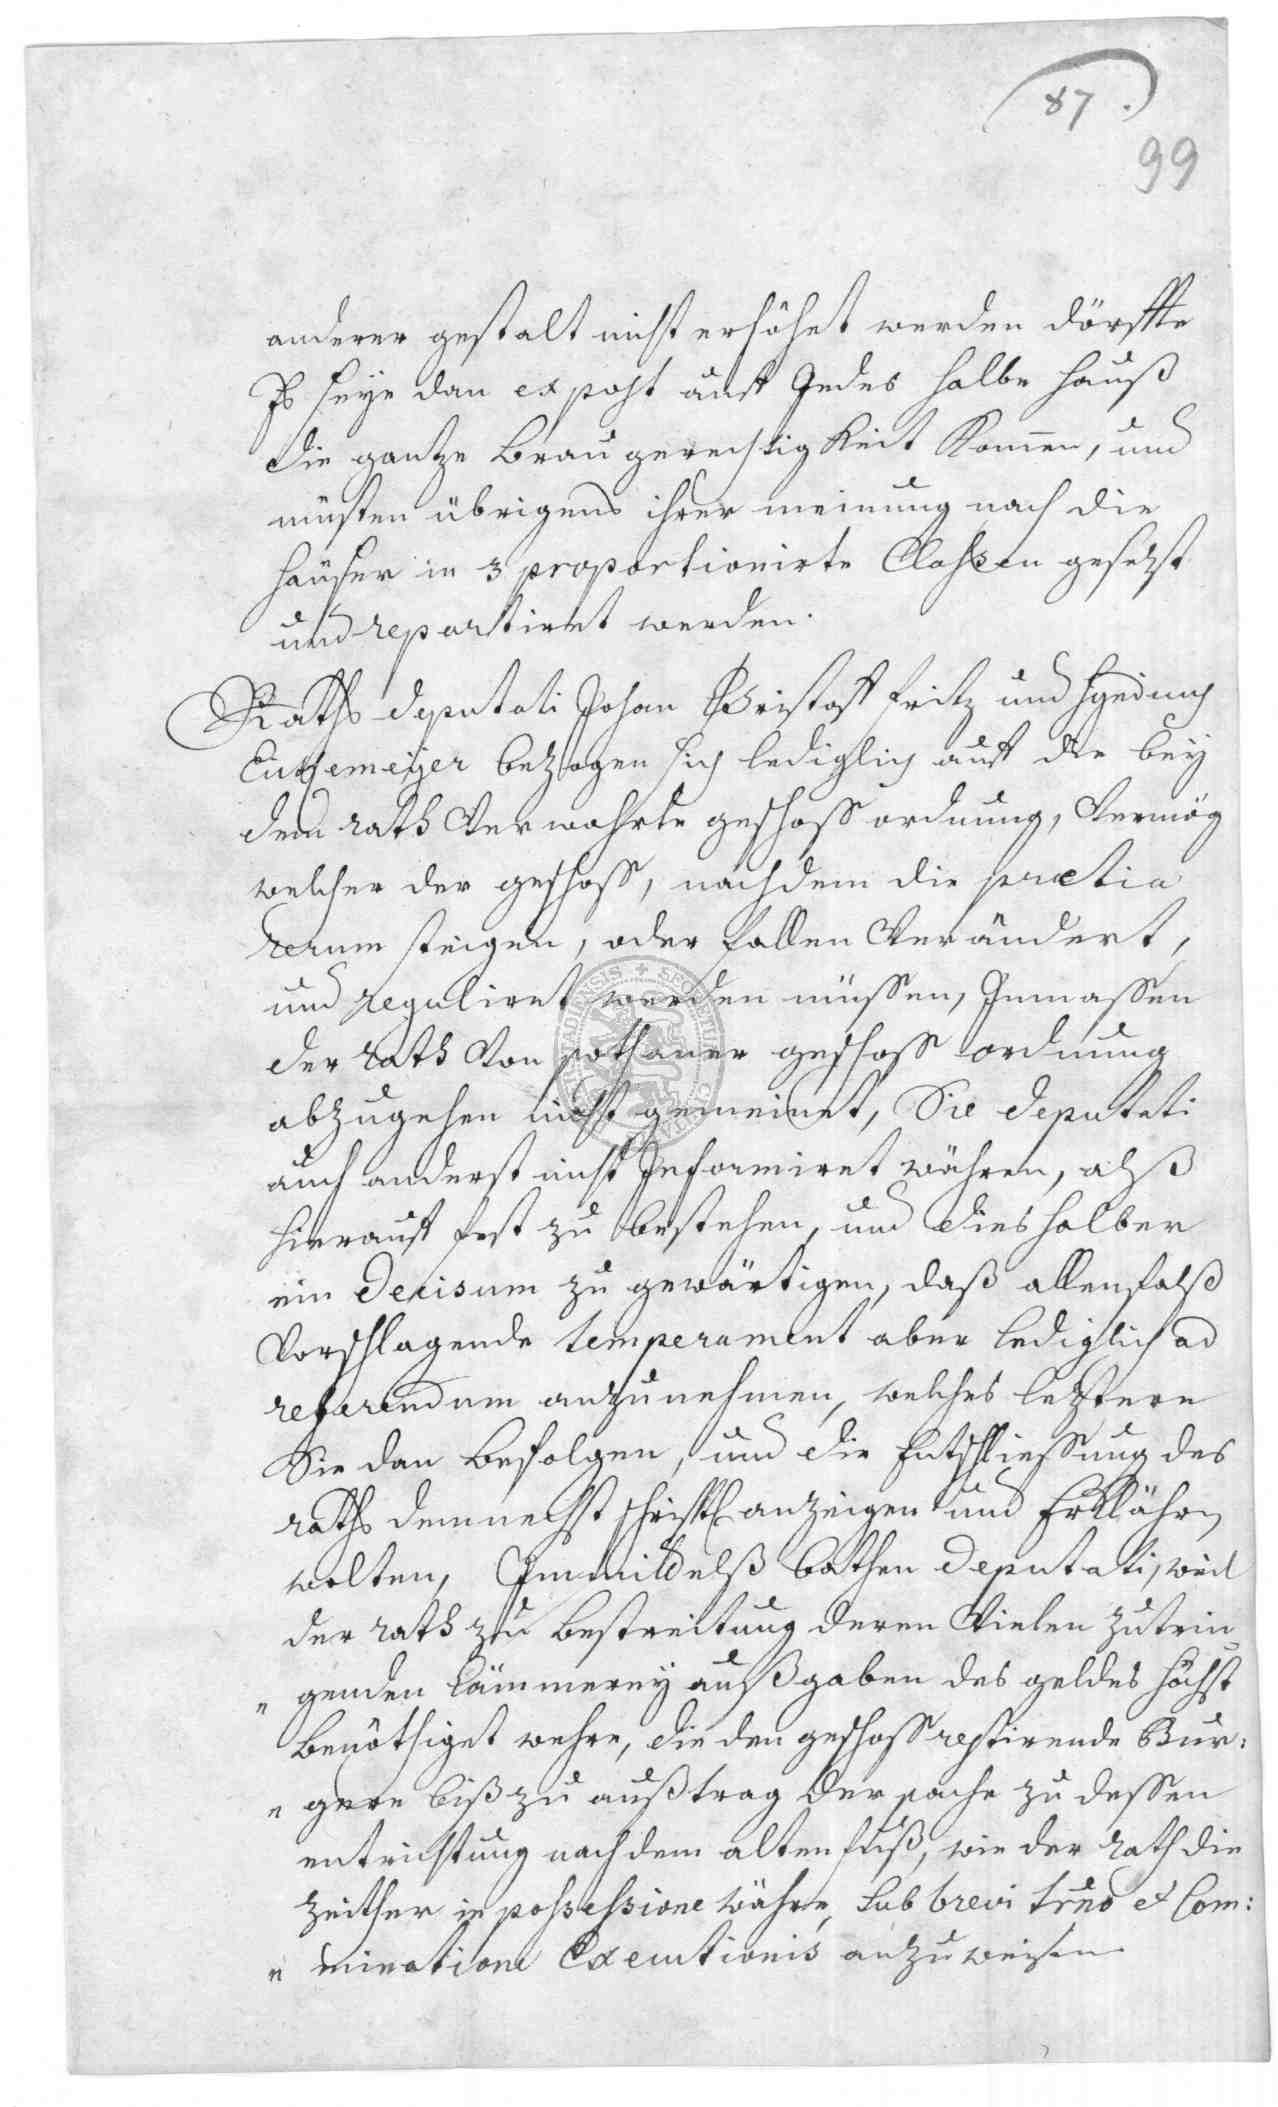 87.
99
anderer gestalt nicht erhöhet werden dörffte
Es seye dan ex post auff Jedes halbe hauß
die gantze Braugerechtigkeit Komen, und
müsten übrigens ihrer meinung nach die
häußer in 3 proportionirte Classen gesetzt
und repartiret werden.
Raths deputati Johan Christoff Fritz und
bezogen sich lediglich auff die bey
dem rath Verwahrte geschoss ordnung, Vermög
welcher der geschoss, nachdem die pretia
rerum steigen, oder fallen Verändert,
und reguliret werden müssen, Inmassen
der rath Von sothaner geschoss ordnung
abzugehen nicht gemeinet, Sie deputati
auch anderst nicht Informiret währen, alß
hierauff fest zu bestehen, und dieshalber
ein Decisum zu gewärtigen, daß allenfalß
Vorschlagende temperament aber lediglich ad
referendum anzunehmen, welches letztere
Sie dan befolgen, und die Entschliessung des
raths demnechst schrifftl. anzeigen und Erklähren
wolten, Immittelß bathen Deputati, weil
der rath zu bestreitung deren Vielen zutrin
" genden Cämmerey außgaben des geldes höchst
benöthiget wehre, die den geschoss restirende Bur:
" gere biß zu außtrag der sache zu dessen
entrichtung nach dem alten fuß, wie der rath die
zeither in possessione währe, sub brevi trno et Com:
" minatione Executionis anzuweisen
SECRETUM